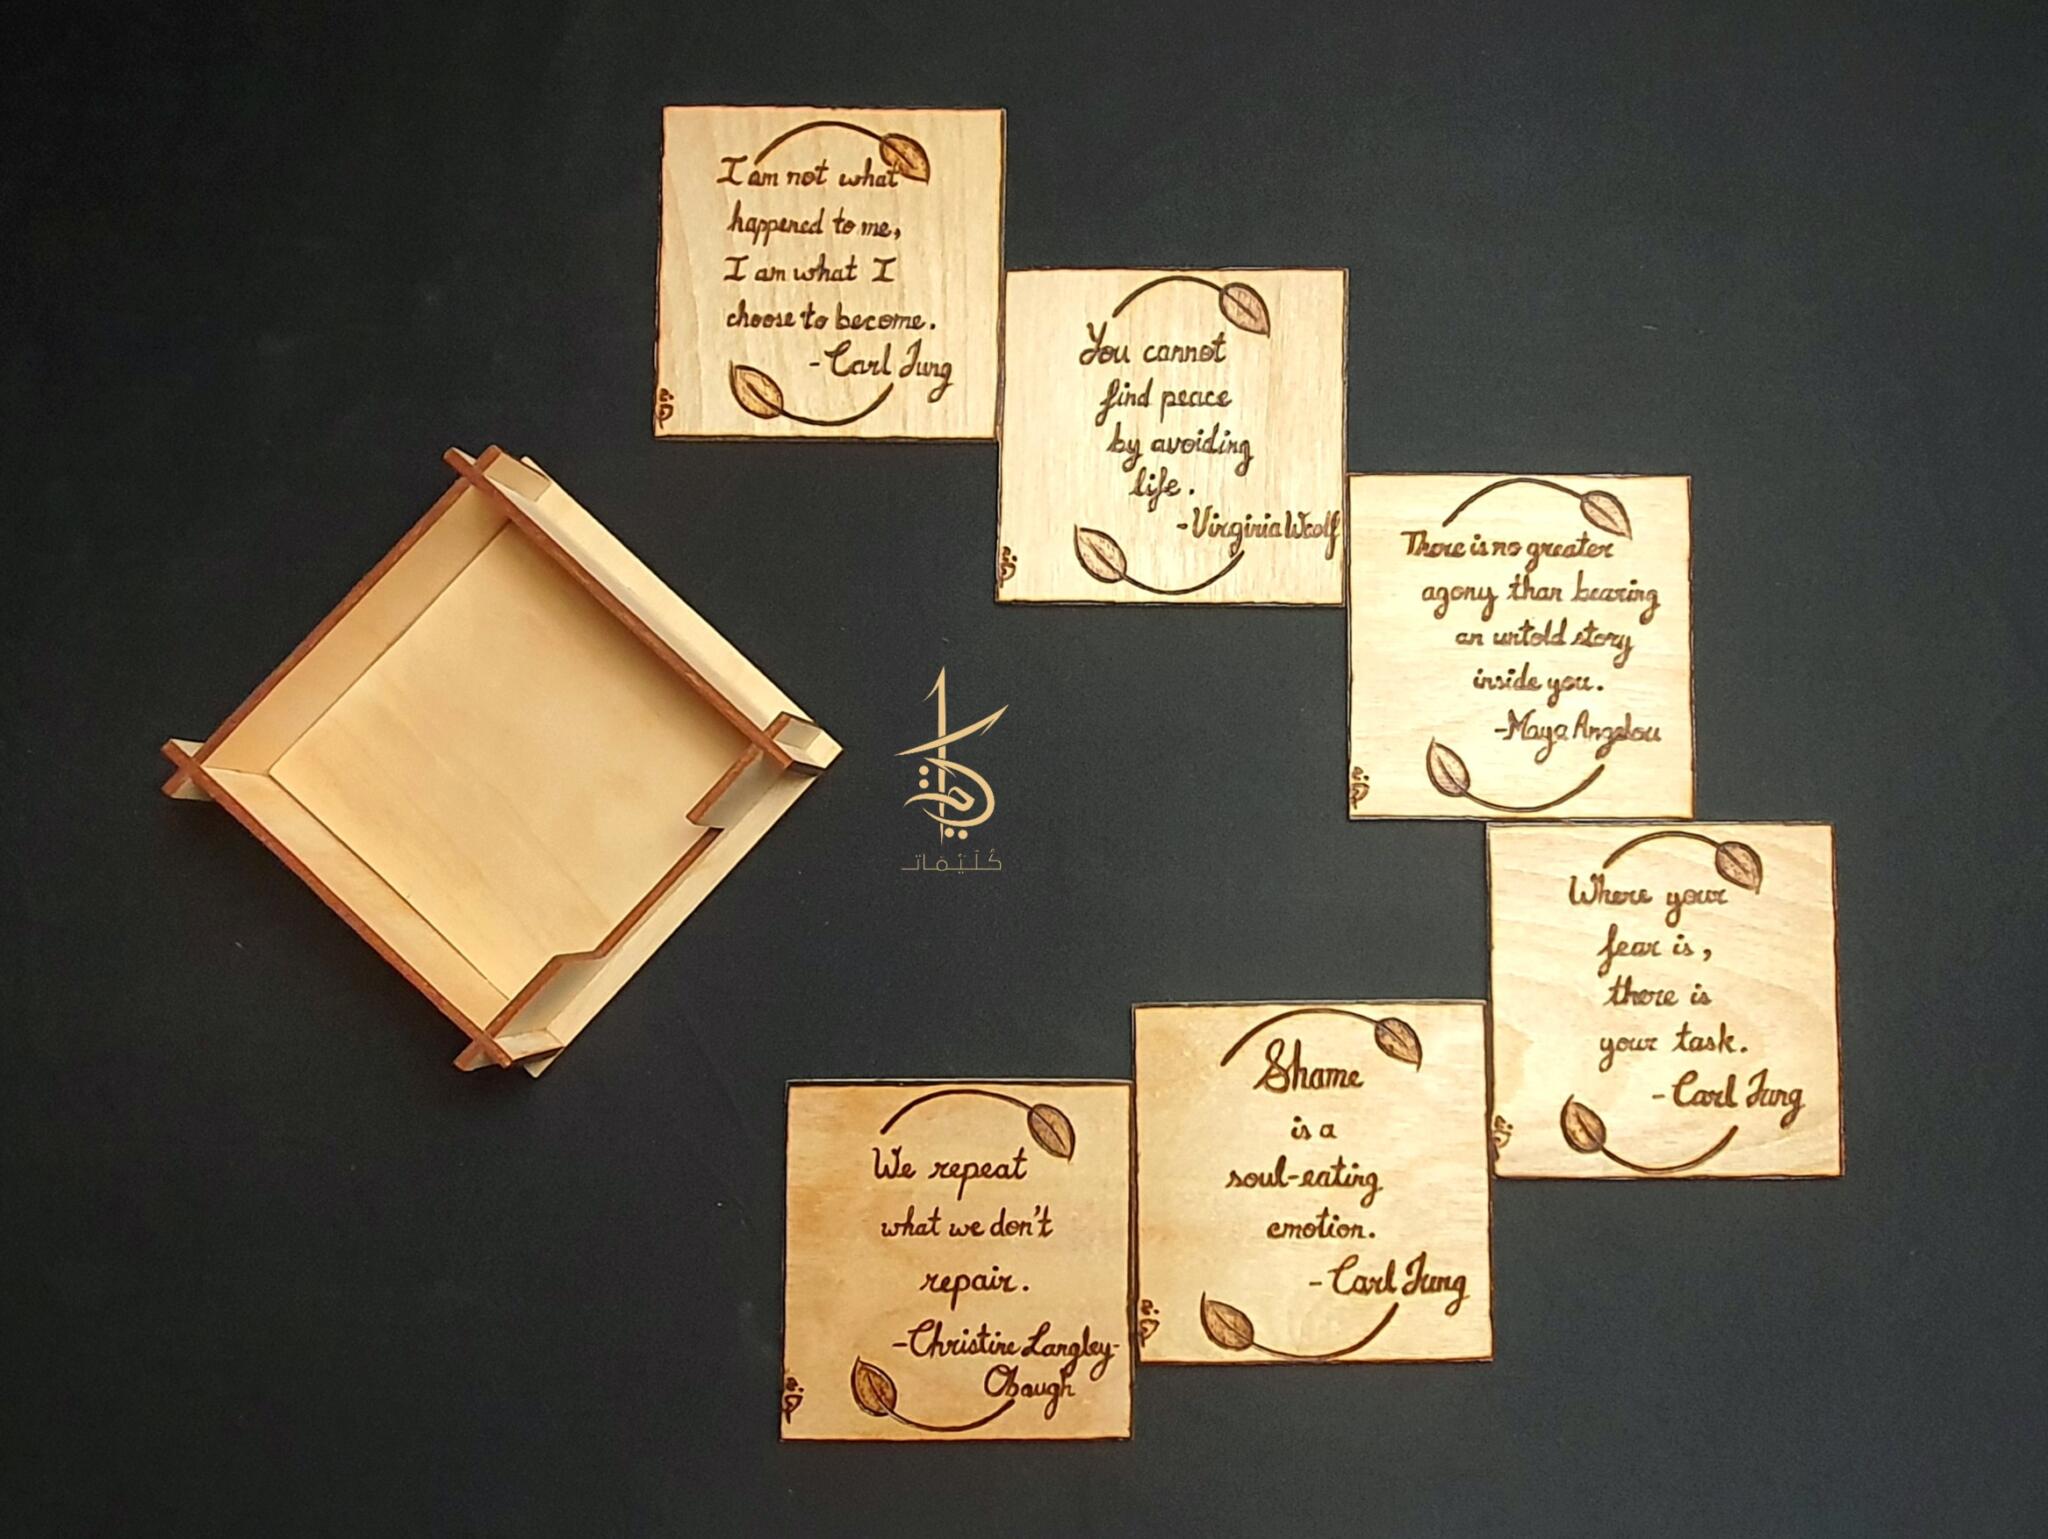 I am not what
happened to me,
I am what I
choose to become.
-Carl Jung
You cannot
find peace
by avoiding
life.
-Virginia Woolf
There is no greater
agony than bearing
an untold story
inside you.
-Maya Angelou
Where your
fear is,
there is
your task.
-Carl Jung
Shame
is a
soul-eating
emotion.
-Carl Jung
We repeat
what we don't
repair.
-Christine Langley-
Obaugh